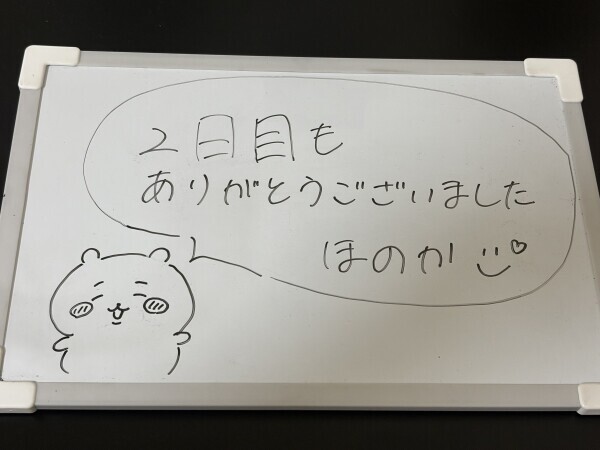 2日目も
ありがとうございました
ほのか